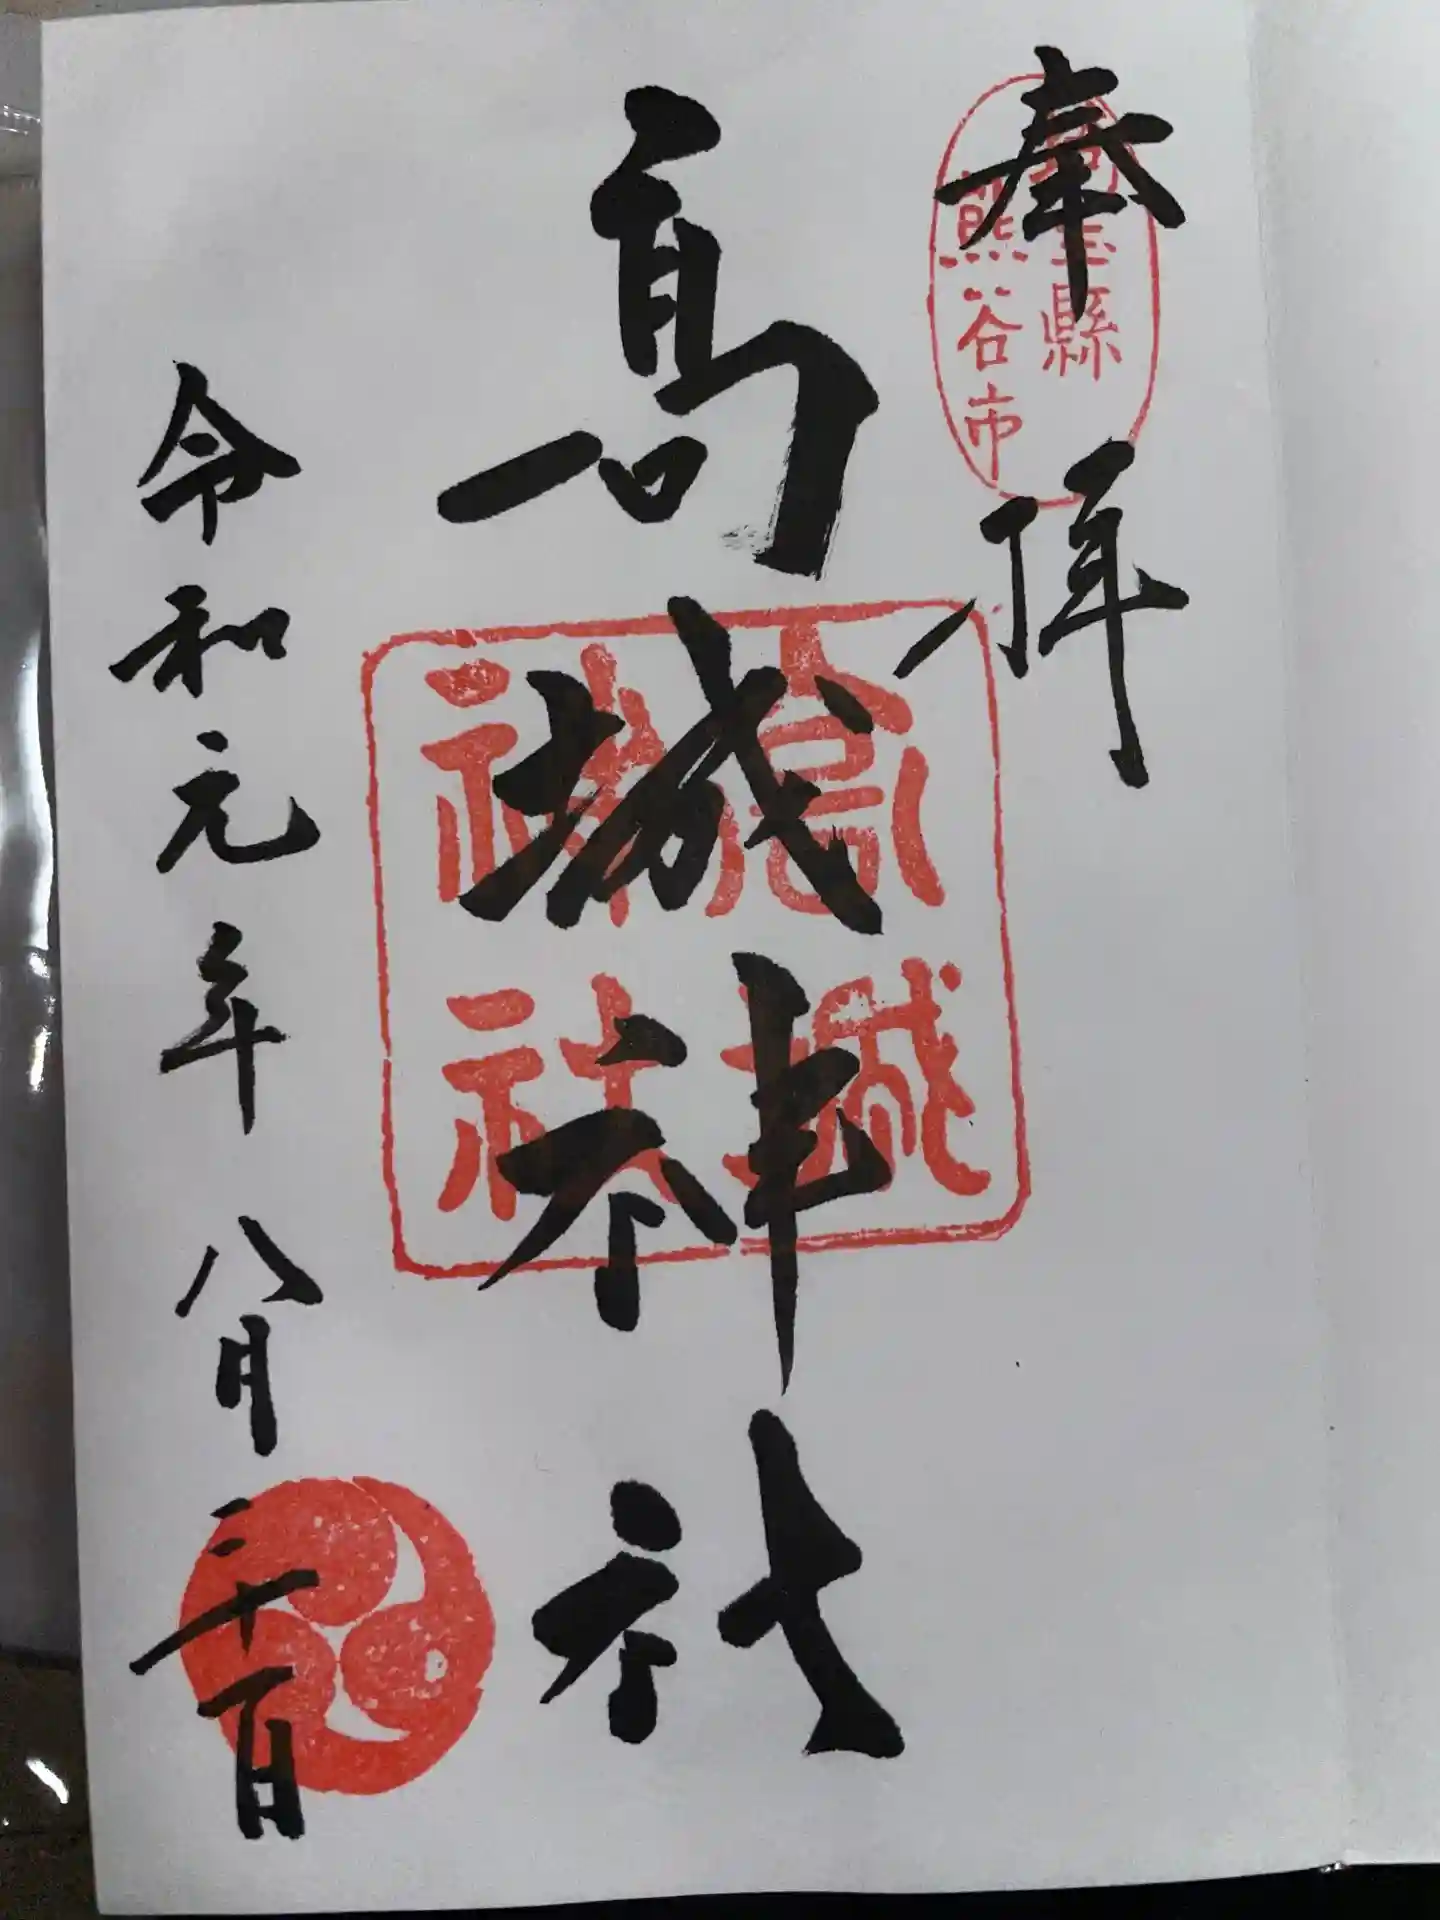 奉拝
埼玉縣
熊谷市
高城神社
高城
神社
令和元年八月三十一日